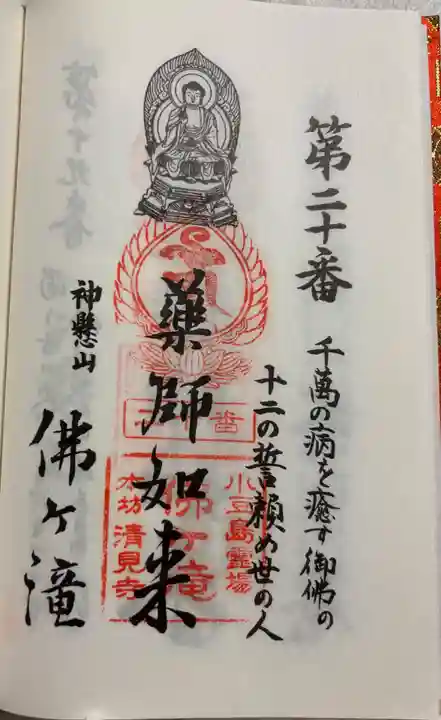 第二十番
千萬の病を癒す御佛の
十二の誓頼め世の人
薬師如来
神懸山
佛ヶ滝
小豆島霊場
佛ヶ滝
本坊清見寺